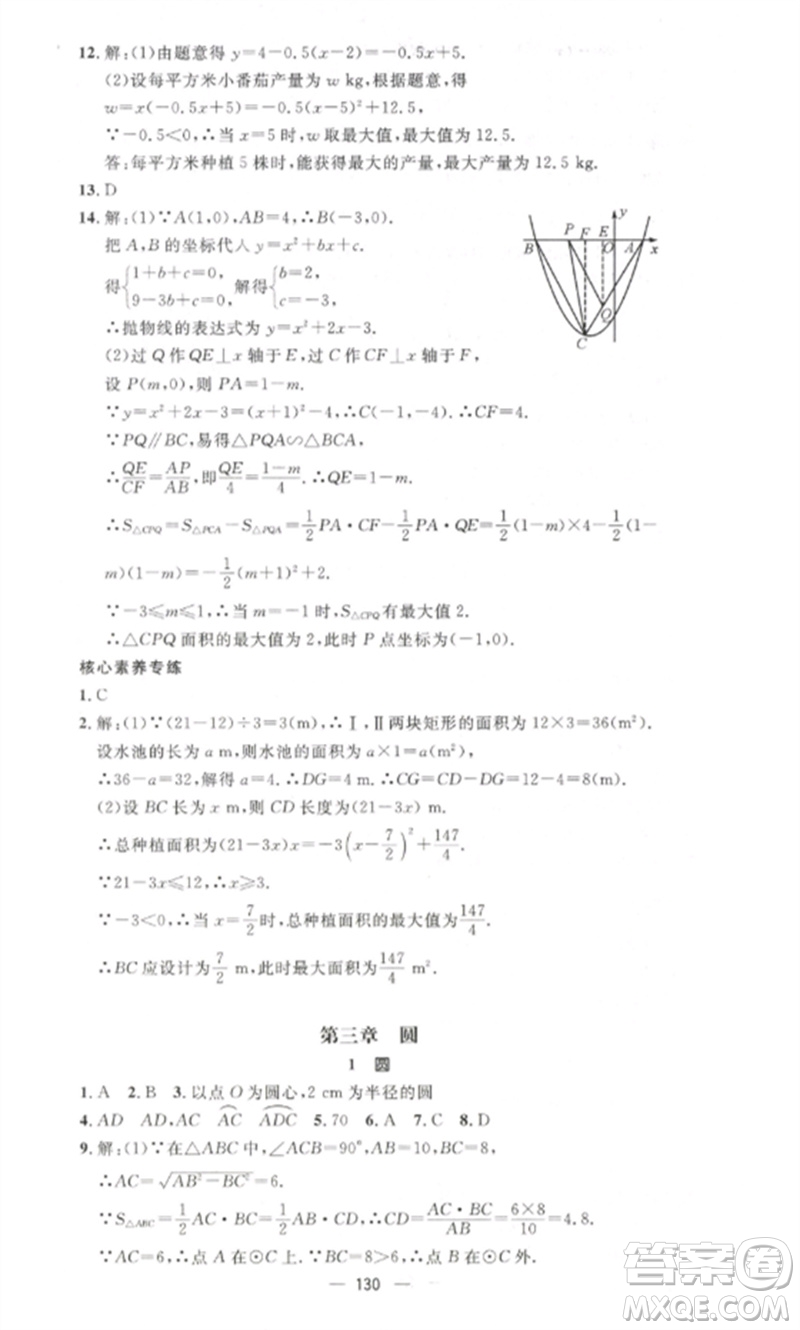 12. 解:(1)由题意得 y=4-0.5(x-2)=-0.5x+5.
(2)设每平方米小番茄产量为 w kg,根据题意,得
w=x(-0.5x+5)=-0.5(x-5)²+12.5,
∵-0.5<0,∴当 x=5 时,w 取最大值,最大值为 12.5.
答:每平方米种植 5 株时,能获得最大的产量,最大产量为 12.5 kg.
13. D
14. 解:(1)∵A(1,0),AB=4,∴B(-3,0).
把 A,B 的坐标代人 y=x²+bx+c,
得{1+b+c=0, 9-3b+c=0, 解得{b=2, c=-3,
∴抛物线的表达式为 y=x²+2x-3.
(2)过 Q 作 QE⊥x 轴于 E,过 C 作 CF⊥x 轴于 F,
设 P(m,0),则 PA=1-m.
∵y=x²+2x-3=(x+1)²-4,∴C(-1,-4).∴CF=4.
∵PQ∥BC,易得△PQA∽△BCA,
∴QE/CF=AP/AB,即QE/4=(1-m)/4.∴QE=1-m.
∴S△CPQ=S△PCA-S△PQA=1/2PA·CF-1/2PA·QE=1/2(1-m)×4-1/2(1-
m)(1-m)=-1/2(m+1)²+2.
∵-3≤m≤1,∴当 m=-1 时,S△CPQ有最大值 2.
∴△CPQ 面积的最大值为 2,此时 P 点坐标为(-1,0).
y
B P F E O A x
Q
C
核心素养专练
1. C
2. 解:(1)∵(21-12)÷3=3(m),∴Ⅰ,Ⅱ两块矩形的面积为 12×3=36(m²).
设水池的长为 a m,则水池的面积为 a×1=a(m²),
∴36-a=32,解得 a=4.∴DG=4 m.∴CG=CD-DG=12-4=8(m).
(2)设 BC 长为 x m,则 CD 长度为(21-3x) m.
∴总种植面积为(21-3x)x=-3(x-7/2)²+147/4.
∵21-3x≤12,∴x≥3.
∵-3<0,∴当 x=7/2时,总种植面积的最大值为147/4.
∴BC 应设计为7/2 m,此时最大面积为147/4 m².
第三章 圆
1 圆
1. A 2. B 3. 以点 O 为圆心,2 cm 为半径的圆
4. AD AD,AC A͡C A͡D͡C 5. 70 6. A 7. C 8. D
9. 解:(1)∵在△ABC 中,∠ACB=90°,AB=10,BC=8,
∴AC=√(AB²-BC²)=6.
∵S△ABC=1/2AC·BC=1/2AB·CD,∴CD=(AC·BC)/AB=(6×8)/10=4.8.
∵AC=6,∴点 A 在⊙C 上.∵BC>6,∴点 B 在⊙C 外.
— 130 —
答案圈
MXQE.COM